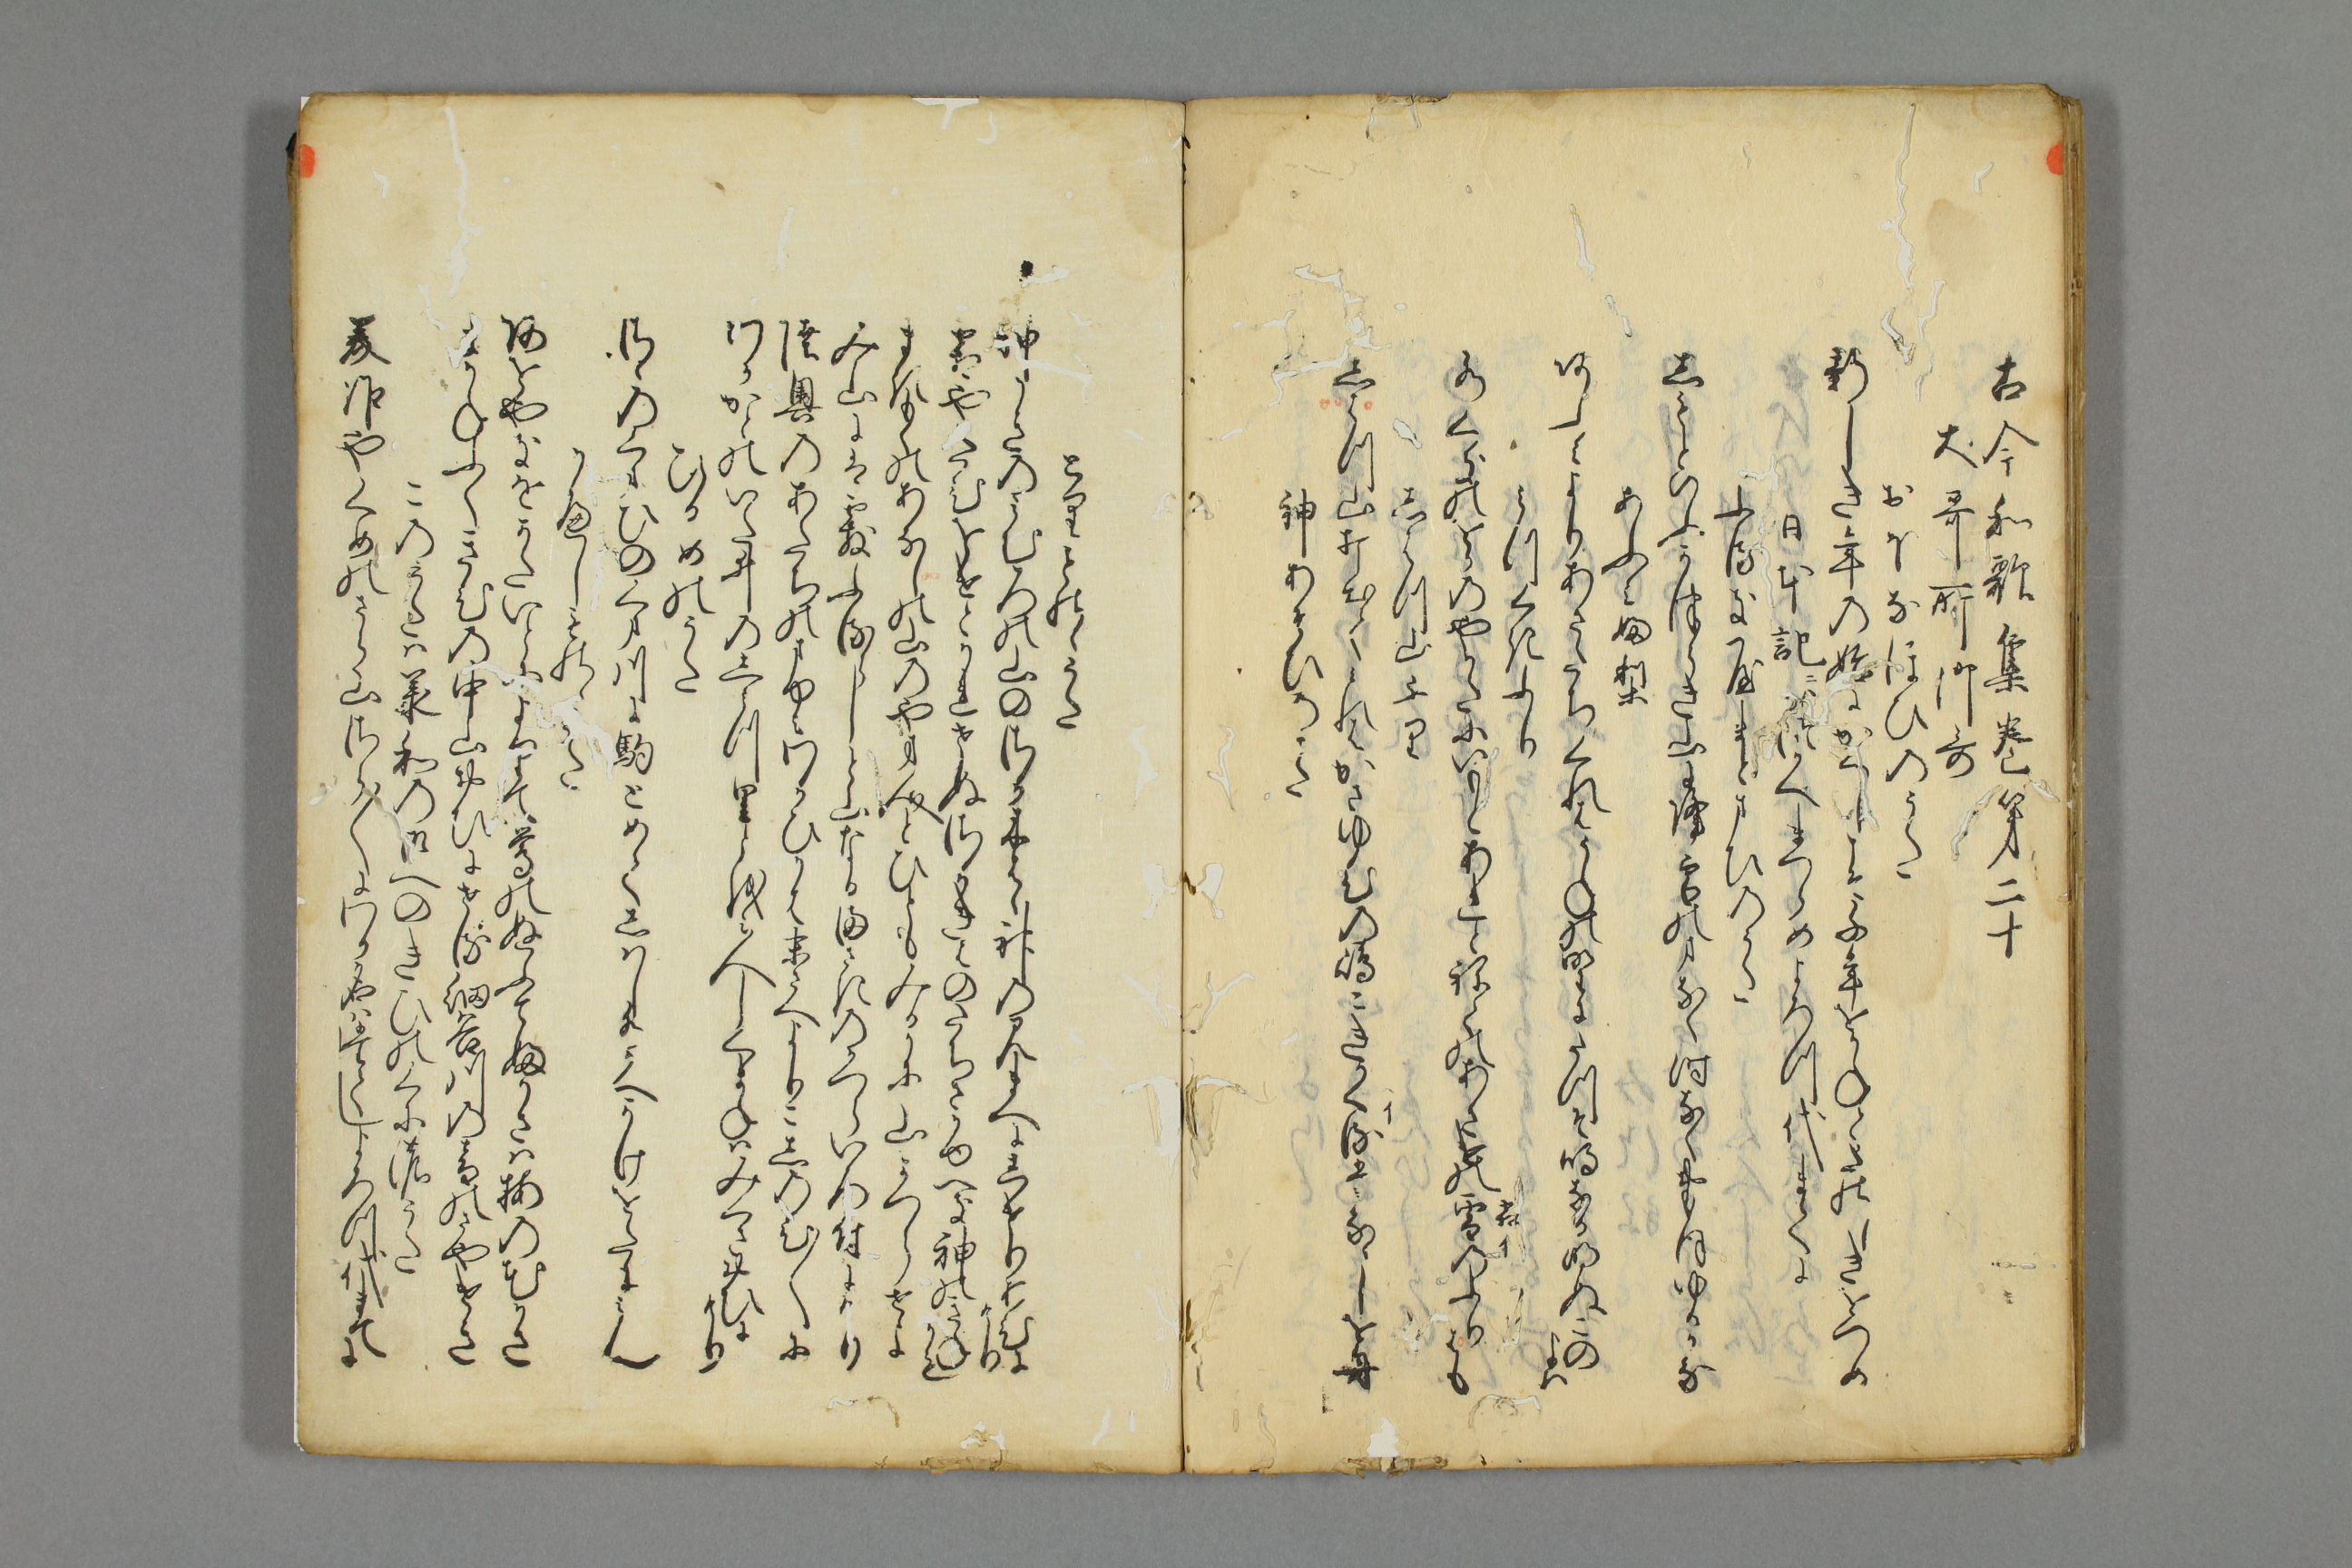 古今和歌集巻第二十
大哥所御哥
おほなほひのうた
新しき年の始にかくしこそ千年をかねてたのしきをつめ
日本記ニハつかへまつらめよろつ代まてに
ふるきやまとまひのうた
しもとゆふかつらき山に降雪のまなく時なくおもほゆるかな
あふみ振
あふみよりあさたちくれはうねの野にたつそ鳴なる明ぬこのよは
みつくきふり
水くきのをかのやかたにいもとあれとねてのあさけの霜のふりはも
しはつ山ふり
しはつ山打出てみれはかさゆひの嶋こきかくるたなゝしを舟
神あそひのうた
とりものゝうた
神かきのみむろの山のさかきは神のみまへにしけりあひにけり
霜やたひをけとかれせぬさかきはのたちさかゆへき神のきねかも
まきもくのあなしの山のやま人とひともみるかに山かつらせよ
み山にはあられふるらしと山なるまさきのかつらいろ付にけり
陸奥のあたちのまゆみわかひかは末さへよりこしのひ〳〵に
わかかとのいた井のし水里とほみ人しくまねはみくさおひにけり
ひるめのうた
さゝのくまひのくま川に駒とめてしはし水かへかけをたにみん
かへしものゝうた
あをやきをかたいとによりて鶯のぬふてふ笠は梅の花かさ
まかねふくきひの中山おひにせる細谷川の音のさやけさ
このうたは承和の御へのきひのくにのうた
美作やくめのさら山さら〳〵にわか名はたてしよろつ代まてに